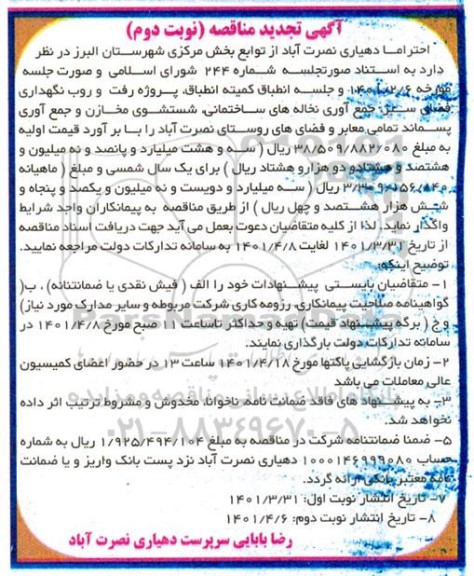 آگهی تجدید مناقصه (نوبت دوم)
احتراما دهیاری نصرت آباد از توابع بخش مرکزی شهرستان البرز در نظر
دارد به استناد صورتجلسه شماره ۲۴۴ شورای اسلامی و صورت جلسه
مورخه و جلسه انطباق کمیته انطباق، پروژه رفت و روب نگهداری
فضای سبز، جمع آوری نخاله های ساختمانی، شستشوی مخازن و جمع آوری
پسماند تمامی معابر و فضای های روستای نصرت آباد را با بر آورد قیمت اولیه
به مبلغ ۳۸/۵۰۹/۸۸۲/۰۸۰ ریال (سه و هشت میلیارد و پانصد و نه میلیون و
هشتصد و هشتادو دو هزارو هشتاد ریال) برای یک سال شمسی و مبلغ (ماهیانه
ریال (سه میلیارد و دویست و نه میلیون و یکصد و پنجاه و
شش هزار هشتصد و چهل ریال) از طریق مناقصه به پیمانکاران واجد شرایط
واگذار نماید. لذا از کلیه متقاضیان دعوت بعمل می آید جهت دریافت اسناد مناقصه
از تاریخ ۱۴۰۱/۳/۳۱ لغایت ۱۴۰۱/۴/۸ به سامانه تدارکات دولت مراجعه نمایید.
توضیح اینکه:
۱- متقاضیان بایستی پیشنهادات خود را الف (فیش نقدی یا ضمانتنامه)، ب(
گواهینامه صلاحیت پیمانکاری، رزومه کاری شرکت مربوطه و سایر مدارک مورد نیاز)
و ج (برگه پیشنهاد قیمت) تهیه و حداکثر تاساعت ۱۱ صبح مورخ ۱۴۰۱/۴/۸ در
سامانه تدارکات دولت بارگذاری نمایند.
۲- زمان بازگشایی پاکتها مورخ ۱۴۰۱/۴/۱۸ ساعت ۱۳ در حضور اعضای کمیسیون
عالی معاملات می باشد
۳- به پیشنهاد های فاقد ضمانت نامه، ناخوانا، مخدوش و مشروط ترتیب اثر داده
نخواهد شد.
۵- ضمنا ضمانتنامه شرکت در مناقصه به مبلغ ۱/۹۲۵/۴۹۴/۱۰۴ ریال به شماره
حساب ۱۰۰۰۱۴۶۹۹۹۰۸۰ دهیاری نصرت آباد نزد پست بانک واریز و یا ضمانت
نامه معتبر بانکی ارائه گردد.
۷- تاریخ انتشار نوبت اول: ۱۴۰۱/۳/۳۱
۸- تاریخ انتشار نوبت دوم: ۱۴۰۱/۴/۶
رضا بابایی سرپرست دهیاری نصرت آباد
۰۲۱-۸۸۳۴۹۶۷۰-۵